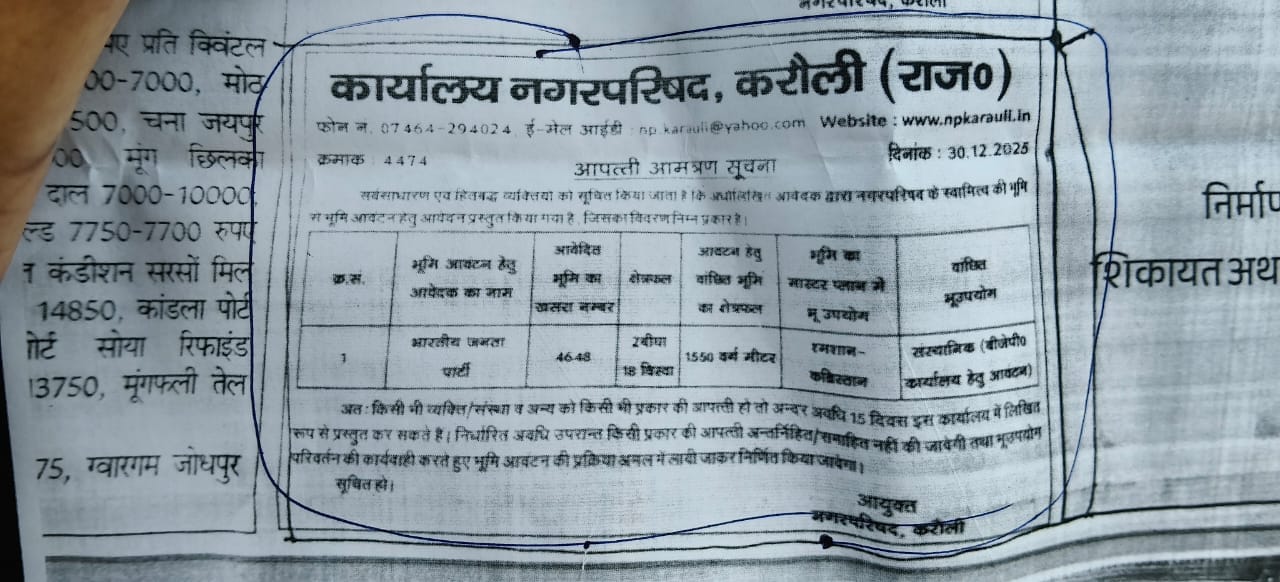 नगरपरिषद, करौली
प्रति क्विंटल
00-7000, मोठ
500, चना जयपुर
00 मूंग छिलका
दाल 7000-10000,
ल्ड 7750-7700 रुपए
कंडीशन सरसों मिल
14850, कांडला पोर्ट
सोया रिफाइंड
13750, मूंगफली तेल
75, ग्वारगम जोधपुर
कार्यालय नगरपरिषद, करौली (राज०)
फोन न. 07464-294024, ई-मेल आईडी : np.karauli@yahoo.com Website : www.npkarauli.in
क्रमाक : 4474
दिनांक : 30.12.2025
आपत्ती आमत्रण सूचना
सर्वसाधारण एवं हितबद्ध व्यक्तियो को सूचित किया जाता है कि अधोलिखित आवेदक द्वारा नगरपरिषद के स्वामित्व की भूमि
से भूमि आवटन हेतु आवेदन प्रस्तुत किया गया है, जिसका विवरण निम्न प्रकार है।
क्र.सं.
भूमि आवटन हेतु
आवेदक का नाम
आवेदित
भूमि का
खसरा नम्बर
क्षेत्रफल
आवटन हेतु
वांछित भूमि
का क्षेत्रफल
भूमि का
मास्टर प्लान मे
भू उपयोग
वांछित
भूउपयोग
1
भारतीय जनता
पार्टी
4648
2बीघा
18 विस्वा
1550 वर्ग मीटर
श्मशान-
कब्रिस्तान
संस्थानिक (बीजेपी०
कार्यालय हेतु आवटन)
अत: किसी भी व्यक्ति/संस्था व अन्य को किसी भी प्रकार की आपत्ती हो तो अन्दर अवधि 15 दिवस इस कार्यालय में लिखित
रूप से प्रस्तुत कर सकते है। निर्धारित अवधि उपरान्त किसी प्रकार की आपत्ती अन्तर्निहित/समाहित नही की जावेगी तथा भूउपयोग
परिवर्तन की कार्यवाही करते हुए भूमि आवटन की प्रक्रिया अमल में लायी जाकर निर्णित किया जावेगा।
सूचित हो।
आयुक्त
नगरपरिषद, करौली
निर्माण
शिकायत अथ